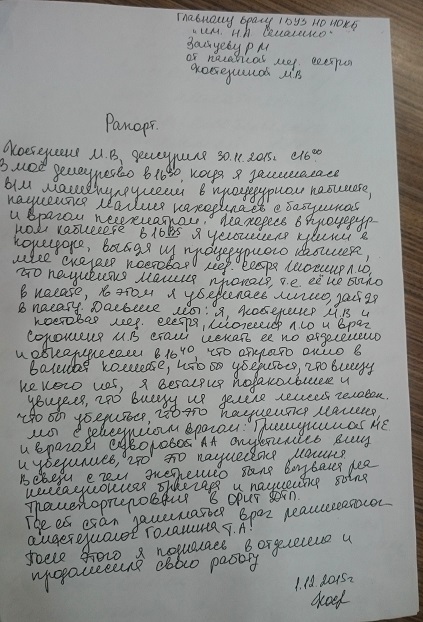 Главному врачу ГБУЗ НО НОКБ
"им. Н.А. Семашко"
Зайцеву Р М
от палатной мед. сестры
Костериной М В
Рапорт.
Костерина М.В, дежурила 30.11.2015г с 16⁰⁰
В моё дежурство в 16³⁰, когда я занималась
в/м манипуляциями в процедурном кабинете,
пациентка Манина находилась с батушкой
и врачом психиатром. Находясь в процедур-
ном кабинете в 16³⁵ я услышала крики в
коридоре, выйдя из процедурного кабинета,
мне сказала постовая мед. сестра
что пациентка Манина пропала, т.е. её не было
в палате, в этом я убедилась лично, зайдя
в палату. Дальше мы: я, Костерина М.В и
постовая мед. сестра, и врач
Сорокина М В стали искать ее по отделению
и обнаружили в 16⁴⁰, что открыто окно в
ванной комнате, что бы убериться, что внизу
не кого нет, я встала на подоконьник и
увидела, что внизу на земле лежит человек.
что бы убериться, что это пациентка Манина
мы с дежурным врачом: Гришуниной М Е
и врачом Суворовой А А спустились вниз
и убедились, что это пациентка Манина
В связи с чем экстренно была вызвана реа
нимационная бригада и пациентка была
транспортирована в ОРИТ
Где ей стал заниматься врач реаниматолог
анестезиолог Голакина Т.А!
После этого я поднялась в отделение и
продолжила свою работу
1.12.2015г